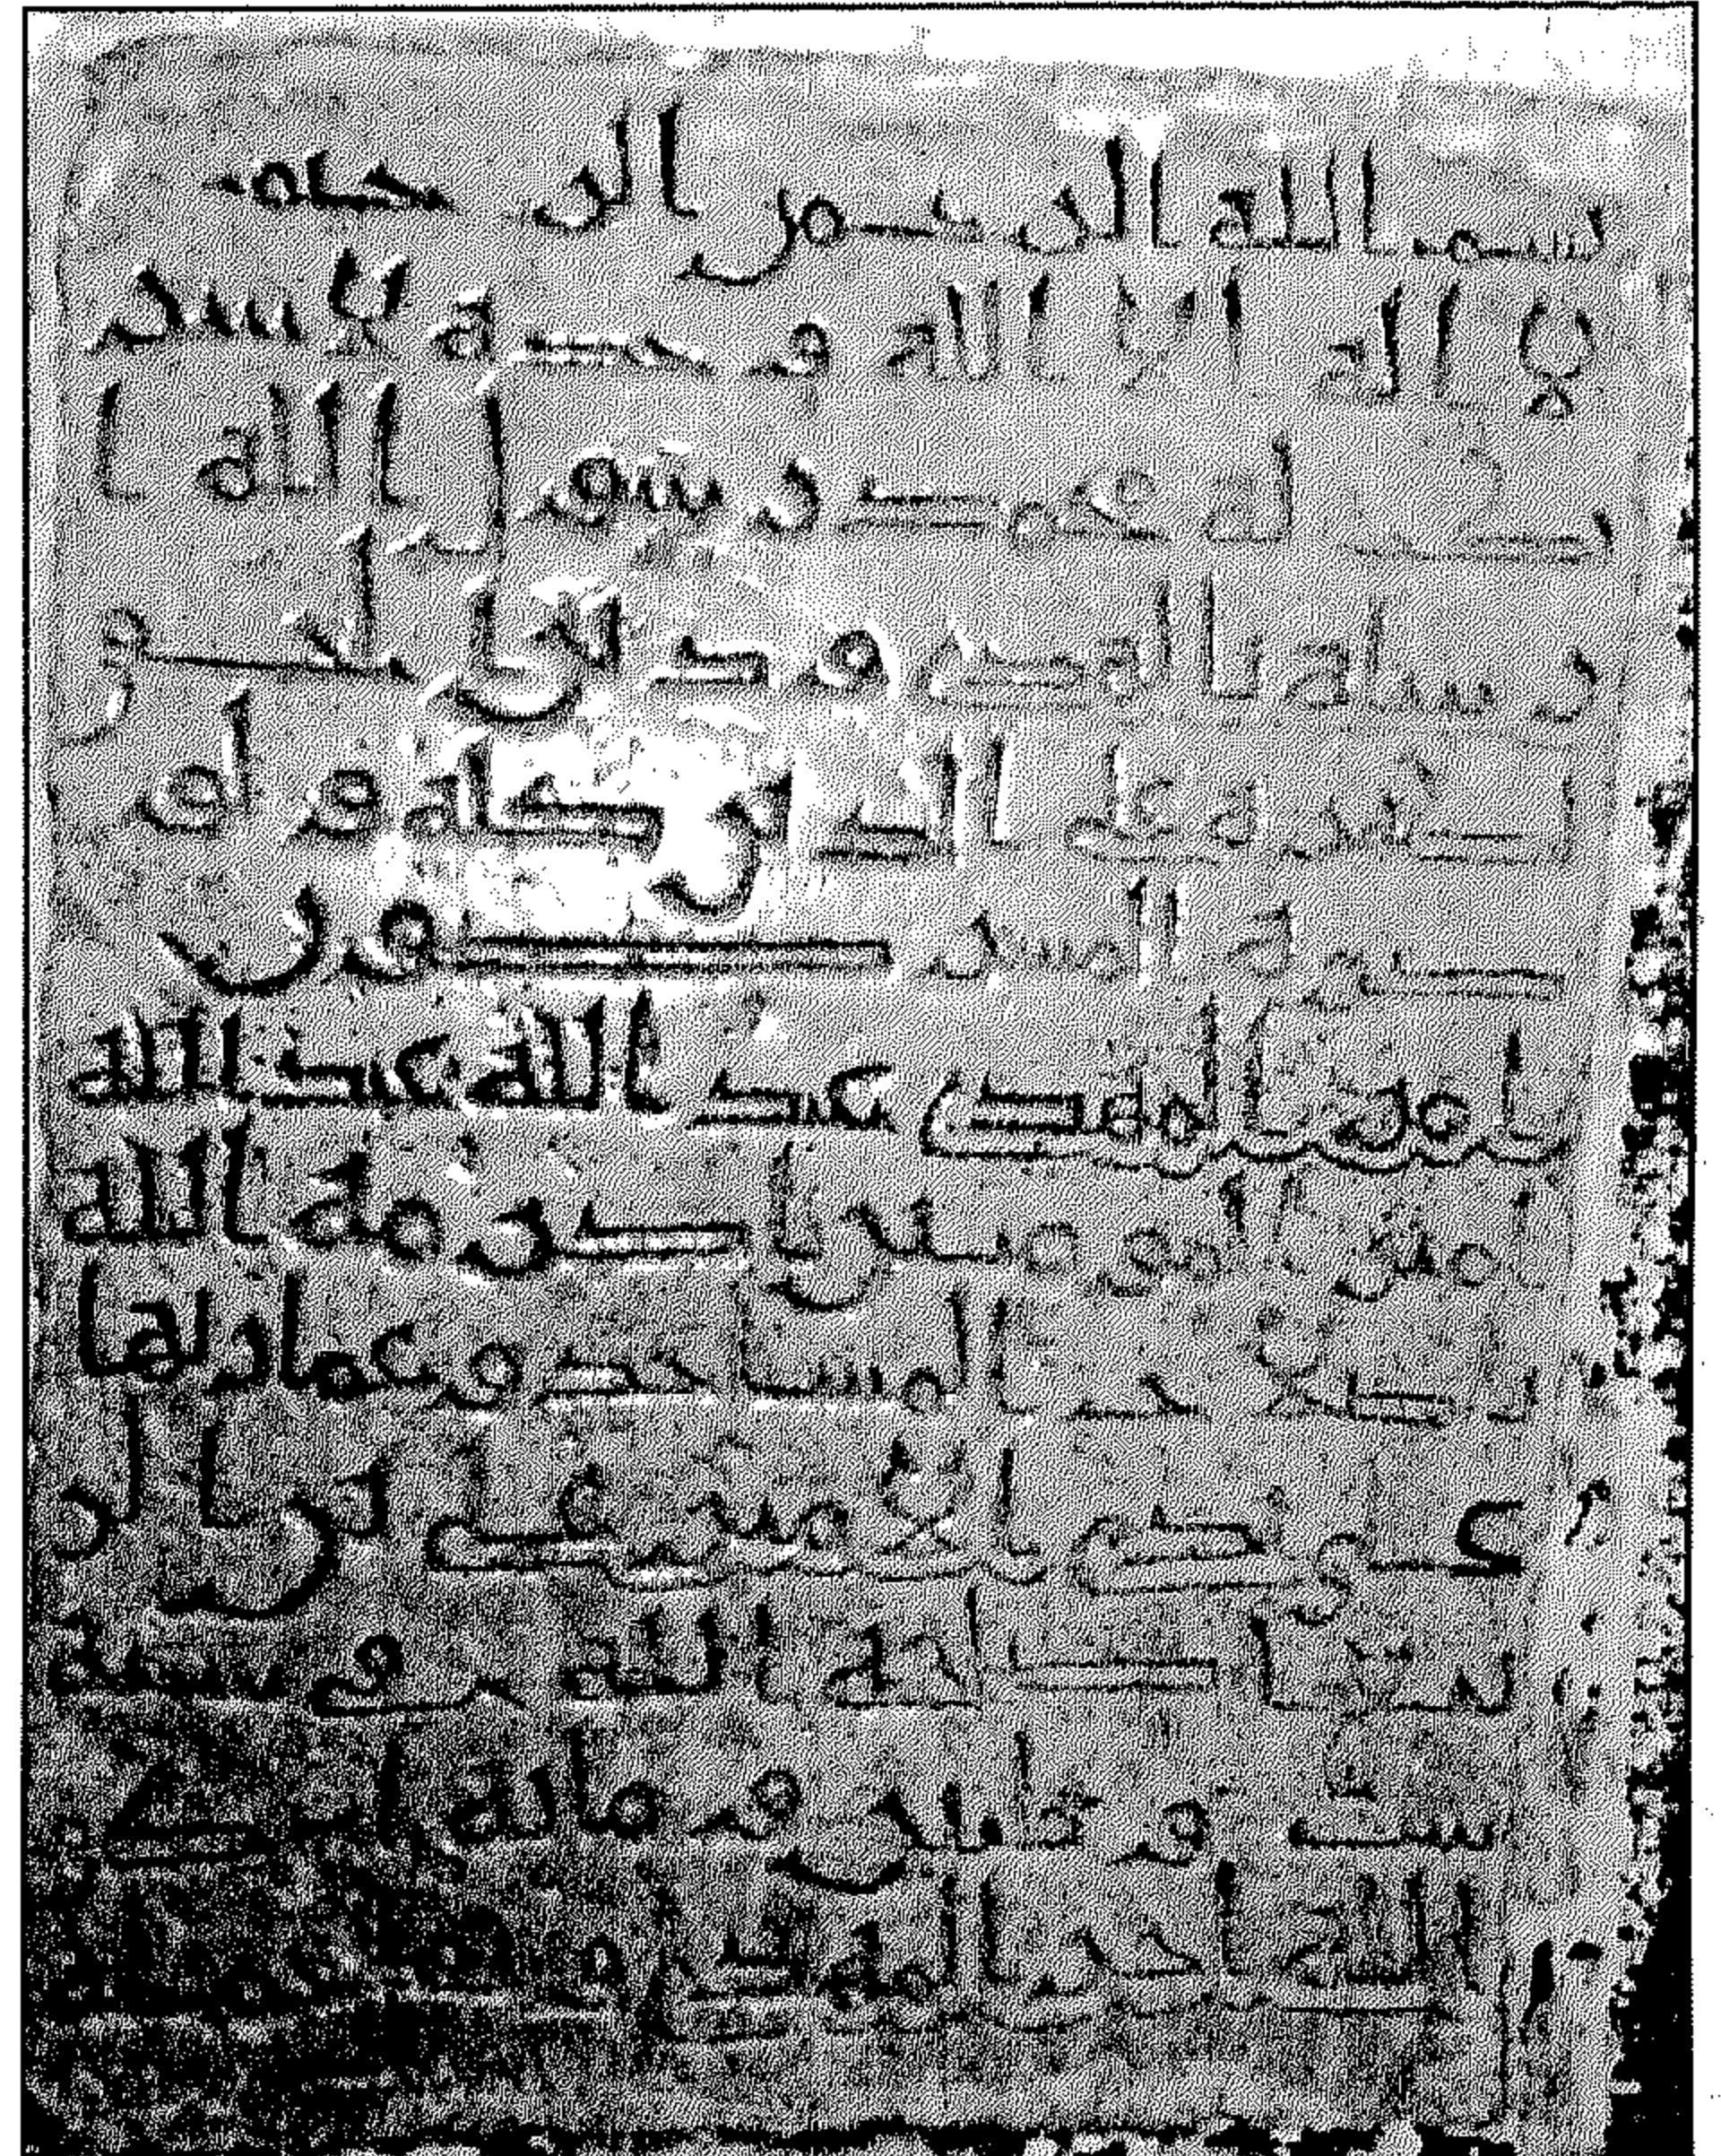 بسم الله الرحمن الرحيم
لا اله الا الله وحده لا شر
يك له محمد رسول الله ا
رسله بالهدى ودين الحق
ليظهره على الدين كله ولو
كره المشركون
امر المهدي عبد الله عبد الله
امير المومنين اكرمه الله
باصلح المساجد وعمارتها
على يدي الامير علي بن الر
بيع اصلحه الله في سنة
ست وثلثين ومائة
الله اجر المهدي